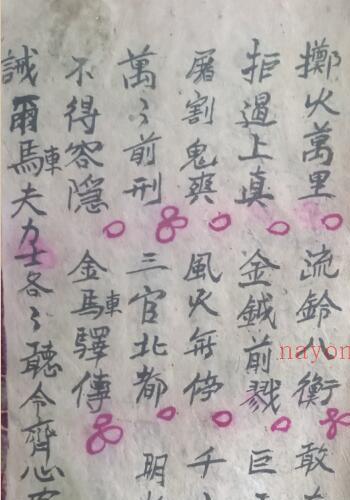 擲火萬里 流鈴八衡 敢
拒逼上真 金鉞前戮 巨
屠割鬼爽 風火無停 千
萬〻前刑 三官北都 明
不得容隱 金馬車驛傳
誡爾馬車夫力士各〻聽令齊心
nayon